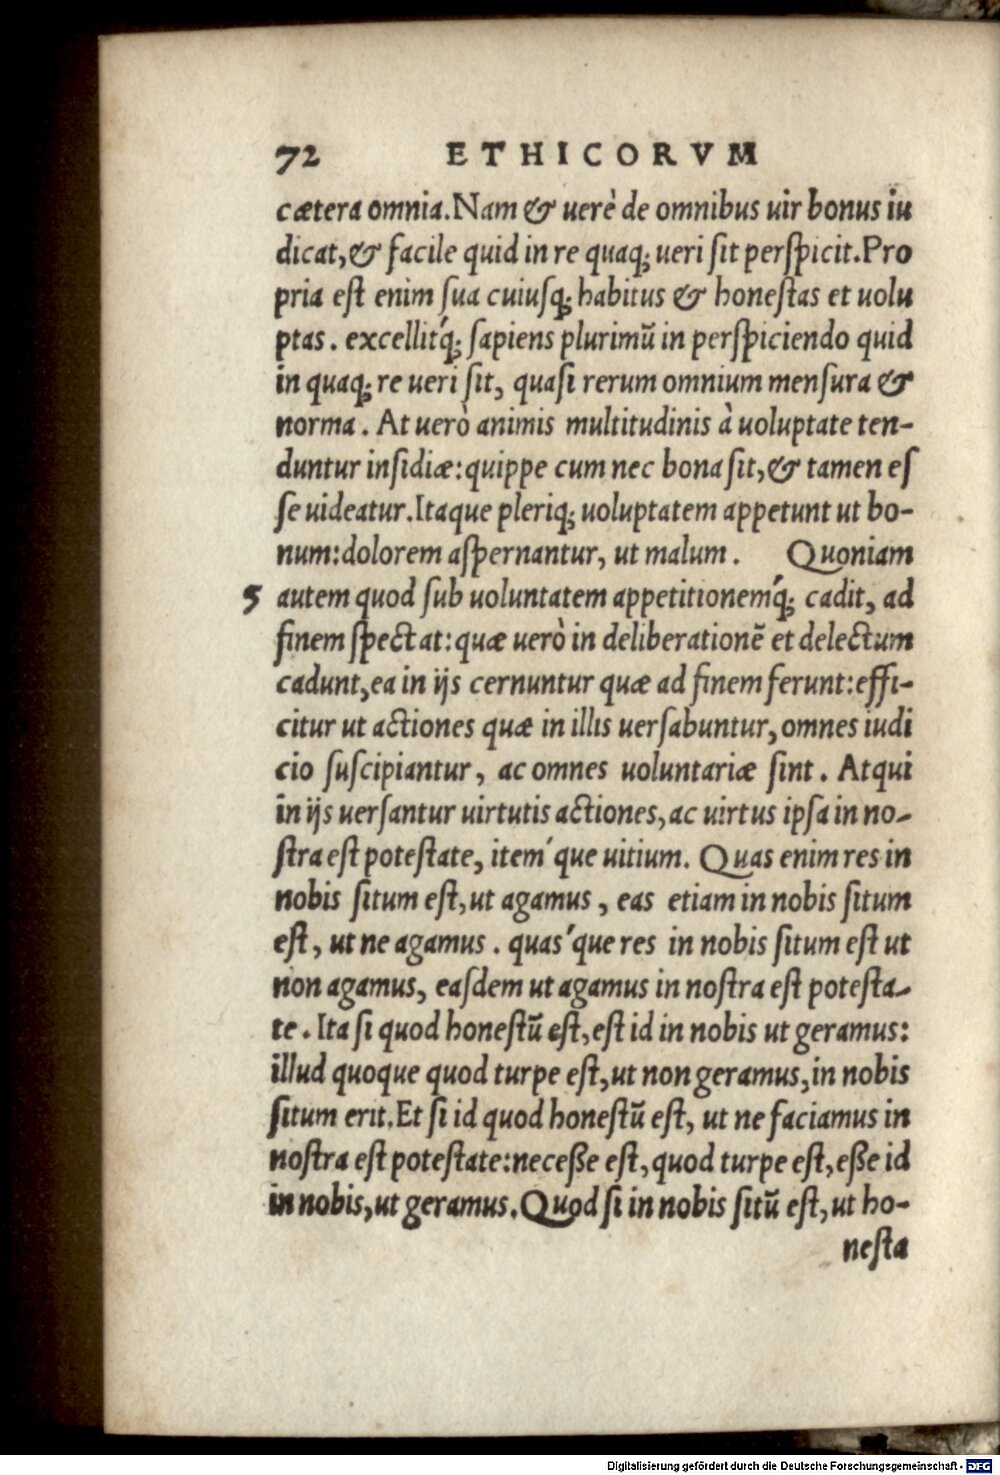 72 ETHICORVM
cætera omnia. Nam & uerè de omnibus uir bonus iu
dicat, & facile quid in re quaq; ueri ſit perſpicit. Pro
pria eſt enim ſua cuiuſq; habitus & honeſtas et uolu
ptas. excellit´q; ſapiens plurimũ in perſpiciendo quid
in quaq; re ueri ſit, quaſi rerum omnium menſura &
norma. At uerò animis multitudinis à uoluptate ten-
duntur inſidiæ: quippe cum nec bona ſit, & tamen eſ
ſe uideatur. Itaque pleriq; uoluptatem appetunt ut bo-
num: dolorem aſpernantur, ut malum. Quoniam
5 autem quod ſub uoluntatem appetitionem´q; cadit, ad
finem ſpectat: quæ uerò in deliberationẽ et delectum
cadunt, ea in ijs cernuntur quæ ad finem ferunt: effi-
citur ut actiones quæ in illis uerſabuntur, omnes iudi
cio ſuſcipiantur, ac omnes uoluntariæ ſint. Atqui
in ijs uerſantur uirtutis actiones, ac uirtus ipſa in no-
ſtra eſt poteſtate, item´que uitium. Quas enim res in
nobis ſitum eſt, ut agamus, eas etiam in nobis ſitum
eſt, ut ne agamus. quas´que res in nobis ſitum eſt ut
non agamus, eaſdem ut agamus in noſtra eſt poteſta-
te. Ita ſi quod honeſtũ eſt, eſt id in nobis ut geramus:
illud quoque quod turpe eſt, ut non geramus, in nobis
ſitum erit. Et ſi id quod honeſtũ eſt, ut ne faciamus in
noſtra eſt poteſtate: neceße eſt, quod turpe eſt, eße id
in nobis, ut geramus. Quod ſi in nobis ſitũ eſt, ut ho-
neſta
Digitalisierung gefördert durch die Deutsche Forschungsgemeinschaft - DFG